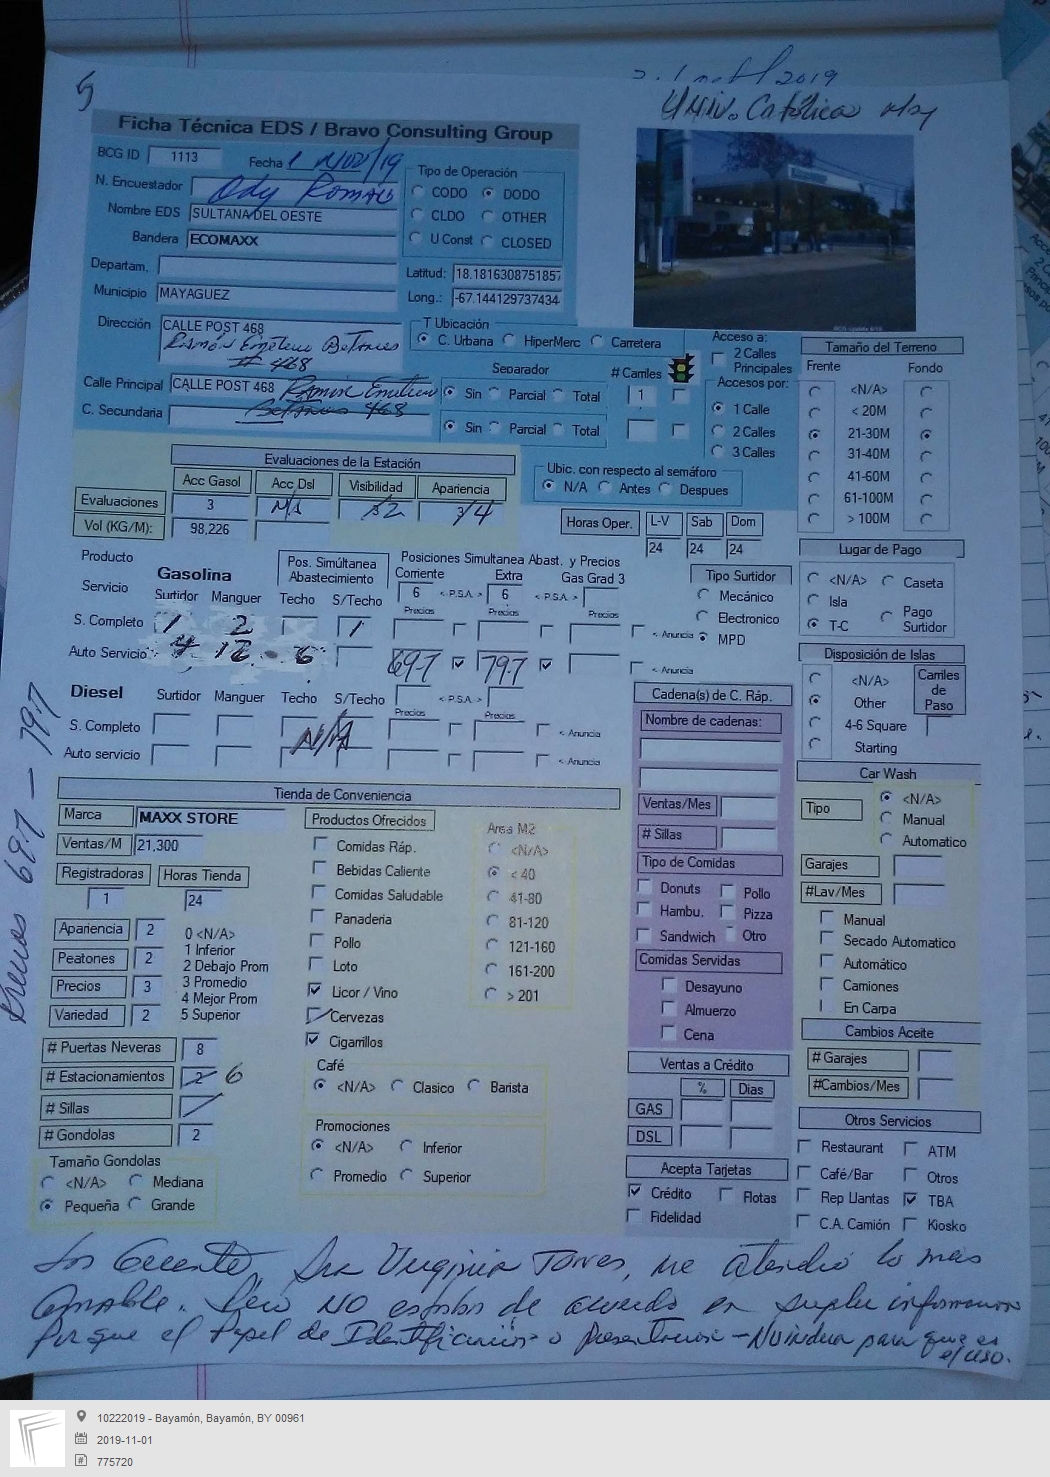 5
2019
Univ. Católica
Ficha Técnica EDS / Bravo Consulting Group
BCG ID 1113 Fecha 1 Nov/19
N. Encuestador Ody Roman
Nombre EDS SULTANA DEL OESTE
Bandera ECOMAXX
Departam.
Municipio MAYAGUEZ
Tipo de Operación
CODO DODO
CLDO OTHER
U Const CLOSED
Latitud: 18.1816308751857
Long.: -67.144129737434
Dirección CALLE POST 468
Ramón Emeterio Betances
# 468
T Ubicación
C. Urbana HiperMerc Carretera
Calle Principal CALLE POST 468 Ramon Emeterio
Betances 468
C. Secundaria
Separador # Carriles
Sin Parcial Total 1
Sin Parcial Total
Acceso a:
2 Calles
Principales
Accesos por:
1 Calle
2 Calles
3 Calles
Tamaño del Terreno
Frente Fondo
<N/A>
< 20M
21-30M
31-40M
41-60M
61-100M
> 100M
Evaluaciones de la Estación
Acc Gasol Acc Dsl Visibilidad Apariencia
Evaluaciones 3 N/A
Vol (KG/M): 98,226
Ubic. con respecto al semáforo
N/A Antes Despues
Horas Oper. L-V Sab Dom
24 24 24
Producto
Servicio
Gasolina
Surtidor Manguer
Pos. Simúltanea
Abastecimiento
Techo S/Techo
Posiciones Simultanea Abast. y Precios
Corriente Extra Gas Grad 3
6 < P.S.A. > 6 < P.S.A. >
Precios Precios Precios
S. Completo 1 2 1 < Anuncia
Auto Servicio 4 12 6 697 797 < Anuncia
Tipo Surtidor
Mecánico
Electronico
MPD
Lugar de Pago
<N/A> Caseta
Isla
T-C Pago
Surtidor
Diesel Surtidor Manguer Techo S/Techo < P.S.A. >
Precios Precios
S. Completo N/A < Anuncia
Auto servicio < Anuncia
Disposición de Islas
<N/A>
Other
4-6 Square
Starting
Carriles
de
Paso
Precios 697 — 797
Tienda de Conveniencia
Marca MAXX STORE
Ventas/M 21,300
Registradoras Horas Tienda
1 24
Apariencia 2
Peatones 2
Precios 3
Variedad 2
0 <N/A>
1 Inferior
2 Debajo Prom
3 Promedio
4 Mejor Prom
5 Superior
# Puertas Neveras 8
# Estacionamientos 2 6
# Sillas
# Gondolas 2
Tamaño Gondolas
<N/A> Mediana
Pequeña Grande
Productos Ofrecidos
Comidas Ráp.
Bebidas Caliente
Comidas Saludable
Panaderia
Pollo
Loto
Licor / Vino
Cervezas
Cigarrillos
Area M2
<N/A>
< 40
41-80
81-120
121-160
161-200
> 201
Café
<N/A> Clasico Barista
Promociones
<N/A> Inferior
Promedio Superior
Cadena(s) de C. Ráp.
Nombre de cadenas:
Ventas/Mes
# Sillas
Tipo de Comidas
Donuts Pollo
Hambu. Pizza
Sandwich Otro
Comidas Servidas
Desayuno
Almuerzo
Cena
Ventas a Crédito
% Dias
GAS
DSL
Acepta Tarjetas
Crédito Flotas
Fidelidad
Car Wash
Tipo <N/A>
Manual
Automatico
Garajes
#Lav/Mes
Manual
Secado Automatico
Automático
Camiones
En Carpa
Cambios Aceite
# Garajes
#Cambios/Mes
Otros Servicios
Restaurant ATM
Café/Bar Otros
Rep Llantas TBA
C.A. Camión Kiosko
Gerente, Sra Virginia Torres, me atendió lo mas
amable. Pero NO estaba de acuerdo en suplir informacion
por que el Papel de Identificación o Presentacion - No indica para que es
el uso.
10222019 - Bayamón, Bayamón, BY 00961
2019-11-01
775720